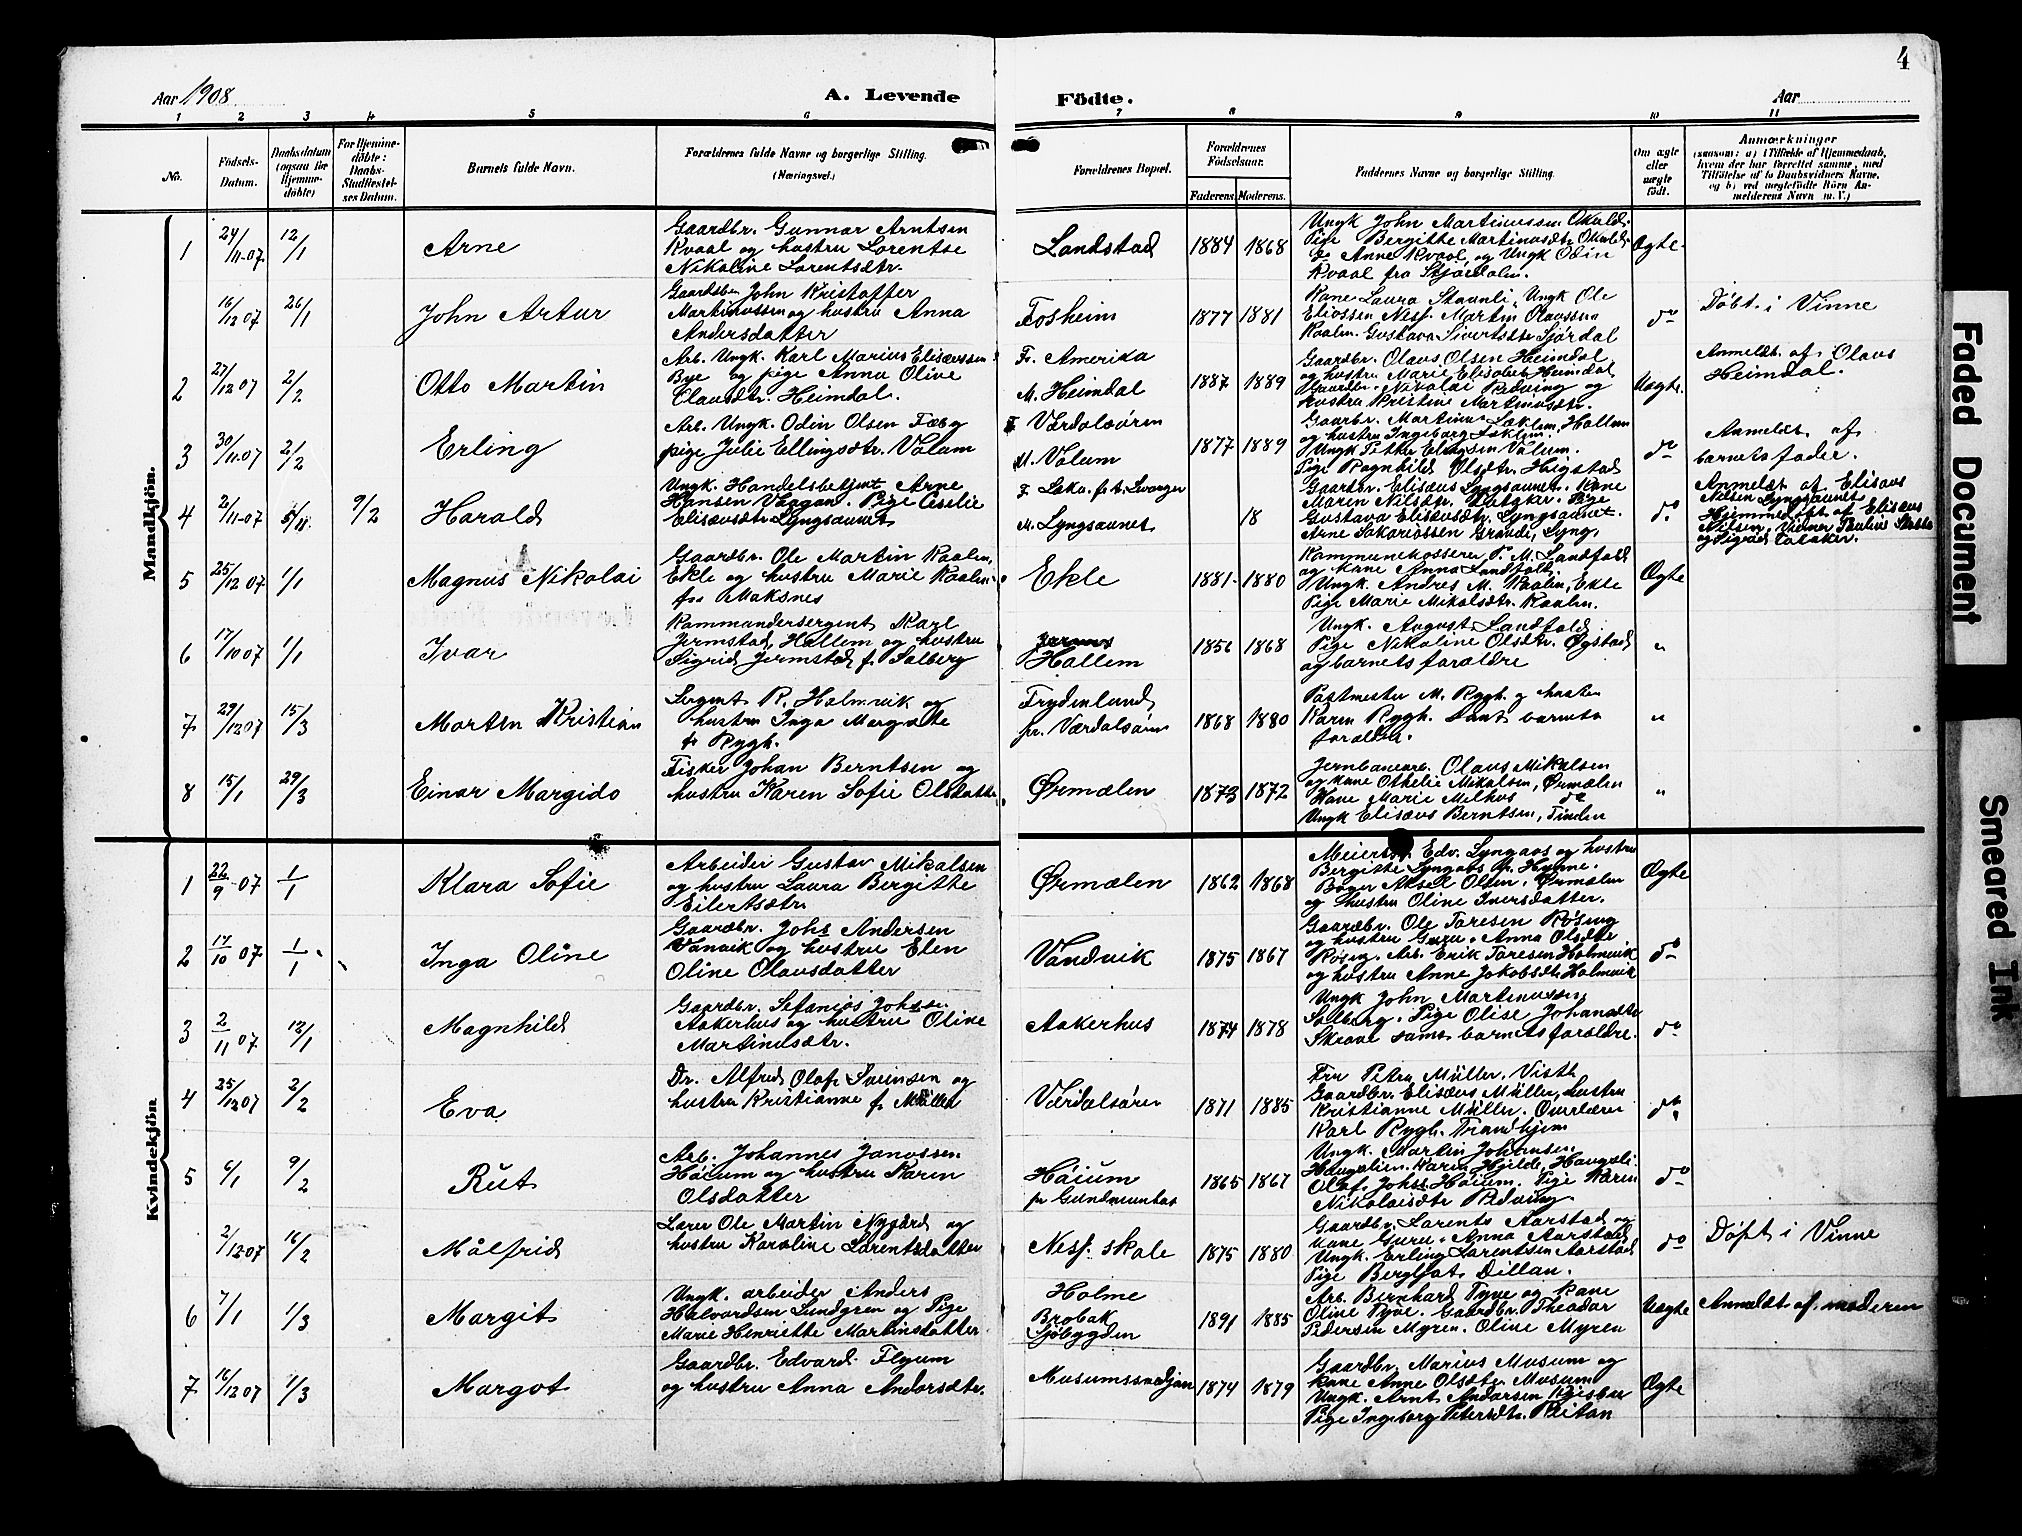 4
Aar 1908
A. Levende
Födte.
Aar
1 2 3 4 5 6 7 8 9 10 11
No.
Födsels-
Datum.
Daabsdatum
(ogsaa for
Hjemme-
döbte)
For Hjemme-
döbte:
Daabs-
Stadfæstel-
ses Datum.
Barnets fulde Navn.
Forældrenes fulde Navne og borgerlige Stilling.
(Næringsvei.)
Forældrenes Bopæl.
Forældrenes
Födselsaar.
Faderens. Moderens.
Faddernes Navne og borgerlige Stilling.
Om ægte
eller
uægte
födt.
Anmærkninger
(saasom: a) i Tilfælde af Hjemmedaab,
hvem der har forrettet samme, med
Tilföielse af to Daabsvidners Navne,
og b) ved uægtefödte Börn An-
melderens Navn m. V.)
Mandkjön.
1
24/11-07
12/1
Arne
Gaardbr. Gunnar Arntsen
Kvaal og hustru Lorentse
Nikoline Lorentsdtr.
Landstad
1884 1868
Ungk John Martinussen Okkald.
Pige Bergitte Martinusdtr Okkald.
Anne Kvaal, og Ungk Odin
Kvaal fra Stjördalen.
Ægte.
16/12 07
26/1
John Artur
Gaardbr John Kristoffer
Martinussen og hustru Anna
Andersdatter
Fosheim
1877 1881
Kone Laura Stavnli, Ungk Ole
Eliassen Nesf Martin Olaussen
Kaalen. Gustava Sivertsdtr Sjördal
do
Döbt i Vinne
2
27/12 07
2/2
Otto Martin
Arb. Ungk. Karl Marius Elisæussen
Bye og pige Anna Olive
Olausdtr. Heimdal.
F. Amerika
M. Heimdal
1887 1889
Gaardbr. Olaus Olsen Heimdal
og hustru Marie Elisabet Heimdal
Gaardbr. Nikolai Rödving og
hustru Kristine Martinusdtr.
Uægte.
Anmeldt af Olaus
Heimdal.
3
30/11-07
2/2
Erling
Arb. Ungk. Odin Olsen Fæby
pige Julie Ellingsdtr. Volum
F Værdalsören
M. Volum
1877 1889
Gaarbr. Martinus Læklem, Hallem
og hustru Ingeborg Læklem.
Ungk Petter Elingsen Valum.
Pige Ragnhild Olsdtr. Hegstad
do
Anmeldt af
barnets fader.
4
2/11-07
5/11.
9/2
Harald
Ungk. Handelsbetjent Arne
Hansen Vaagan. Pige Cecilie
Elisæusdtr. Lyngsaunet
M. Lyngsaunet
18
Gaardbr. Elisæus Lyngsaunet. Kone
Marin Nilsdtr.
Gustava Elisæusdtr. Lyngsaunet.
Arne Sakariassen Grande, Lyng,
do
Anmeldt af Elisæus
Nilsen Lyngsaunet
Hjemmedöbt af Elisæus
5
25/12 07
1/1
Magnus Nikolai
Gaardbr. Ole Martin Kaalen,
Ekle og hustru Marie Kaalen
fra Maksnes
Ekle
1881. 1880
Kommunekasserer P. M. Landfald
og kone Anna Landfald
Ungk. Andres M. Kaalen, Ekle
Pige Marie Mikalsdtr. Kaalen.
Ægte
6
17/10 07
1/1
Ivar
Kommandersergent Karl
Jermstad, Hallem og hustru
Sigrid Jermstad f. Salberg
Hallem
1856 1868
Ungk. August Landfald
Pige Nikoline Olsdtr. Ogstad
og barnets forældre
"
7
29/12 07
15/3
Morten Kristian
Sergent R. Holmvik og
hustru Inga Margrete
f. Rygh.
Frydenlund
pr. Værdalsören
1868 1880
Postmester M. Rygh. og hustru
Karen Rygh. samt barnets
forældre.
"
8
15/1
29/3
Einar Margido
Fisker Johan Berntsen og
hustru Karen Sofie Olsdatter
Örmælen
1873 1872
Jernbanearb. Olaus Mikalsen
og kone Othelie Mikalsen, Örmælen
Kone Marie Melhus do
Ungk Elisæus Berntsen, Tinden
"
Kvindekjön
1
22/9-07
1/1
Klara Sofie
Arbeider Gustav Mikalsen
og hustru Laura Bergithe
Eilertsdtr
Örmælen
1862 1868
Edv. Lyngaas og hustru
Bergitte Lyngaas
Aksel Olsen. Örmælen
og hustru Oline Iversdatter.
Ægte
2
17/10 07
1/1
Inga Oline
Gaardbr. Johs Andersen
Vanvik og hustru Elen
Oline Olausdatter
Vandvik
1875 1867
Gaardbr. Ole Toresen Röseng
og hustru Guru Anna Olsdtr
Röseng. Arb. Erik Toresen Holmvik
og hustru Anne Jakobsdtr. Holmvik
do
3
2/11 07.
12/1
Magnhild
Gaardbr. Stefanias Johsen
Aakerhus og hustru Oline
Martinusdtr.
Aakerhus
1874 1878
Ungk John Martinussen
Salberg. Pige Olise Johansdtr
Skrove samt barnets forældre.
do
4
25/12 07
2/2
Eva
Dr. Alfred Olaf Sveinsen og
hustru Kristianne f. Müller
Værdalsören
1871 1885
Fru Petra Müller. Visth
Gaardbr. Elisæus Müller, hustru
Kristianne Müller. Overlærer
Karl Rygh. Trondhjem
do
5
6/1
9/2
Rut
Arb. Johannes Janossen
Höium og hustru Karen
Olsdatter
Höium
pr Gudmuntas
1865 1867
Ungk. Martin Johansen
Haugælien. Karen Hjelde, Haugsli
Olaf. Johss Höium. Pige Karen
Nikolaisdtr Rödving
do
2/12 07
16/2
Målfrid
Lærer Ole Martin Nygård og
hustru Karoline Lorentsdatter
Nesf. skole
1875 1880
Gaardbr. Lorents Aarstad og
kone Guru Anna Aarstad
Ungk. Erling Lorentsen Aarstad
Pige Bergljot Dillan.
do
Döpt i Vinne
6
7/1
1/3
Margit
Ungk. arbeider Anders
Halvardsen Lundgren og Pige
Marie Henriette Martinsdatter
Holme
Brobak
Sjöbygden
1891 1885
Arb. Bernhard Tyve og kone
Oline Tyve. Gaardbr. Theodor
Pedersen Myren. Oline Myren
Uægte
Anmeldt af moderen
7
16/12 07
1/3
Margot
Gaardbr. Edvard Flyum
og hustru Anna Andorsdtr.
1874 1879
Gaardbr. Marius Musum og
kone Anne Olsdtr. Musum
Ungk. Arnt Andorsen
Pige Ingeborg Petersdtr. Reitan
Ægte
Faded Document
Smeared Ink